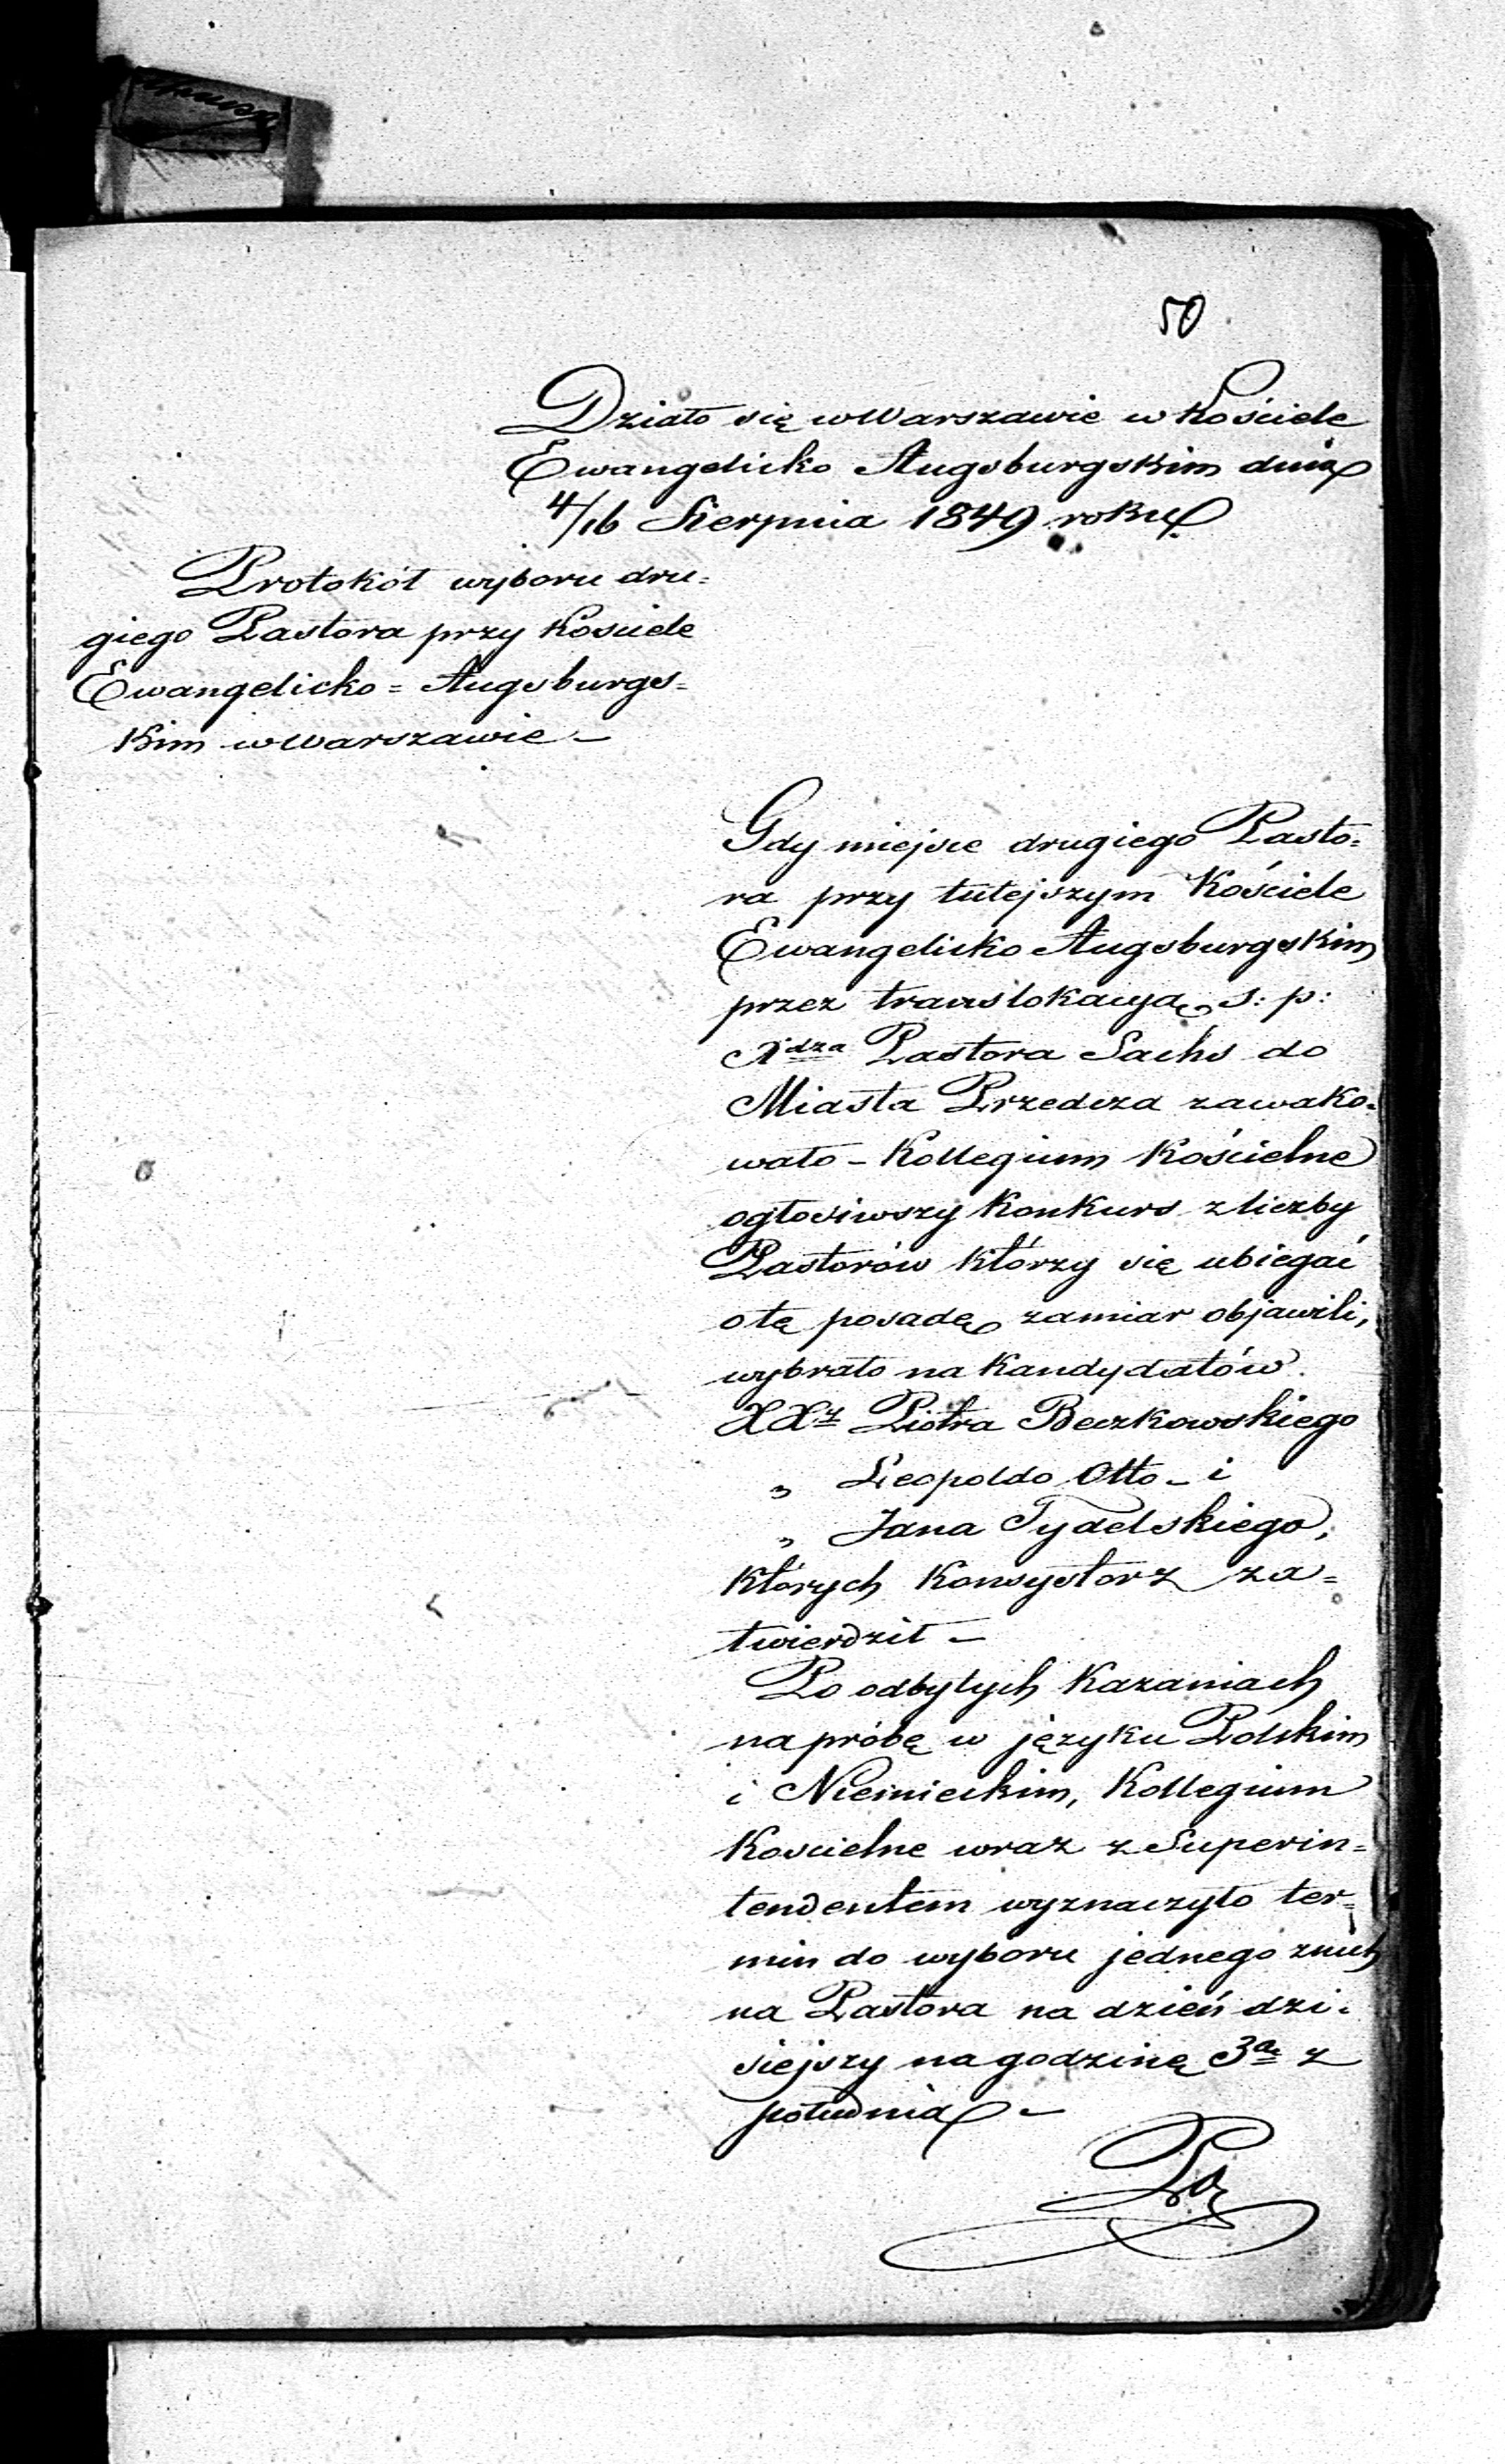 50
Działo się w Warszawie w Kościele
Ewangelicko Augsburgskim dnia
4/16 Sierpnia 1849 roku
Protokół wyboru dru=
giego Pastora przy Kościele
Ewangelicko=Augsburgs=
kim w Warszawie –
Gdy miejsce drugiego Pasto=
ra przy tutejszym Kościele
Ewangelicko Augsburgskim
przez translokacyą s: p:
Xdza Pastora Sachs do
Miasta Przedcza zawako=
wało – Kollegium Kościelne
ogłosiwszy Konkurs z liczby
Pastorów którzy się ubiegać
o tę posadę zamiar objawili,
wybrało na Kandydatów
XXy Piotra Beczkowskiego
„ Leopolda Otto – i
„ Jana Tydelskiego,
których Konsystorz za=
twierdził –
Po odbytych Kazaniach
na próbę w języku Polskim
i Niemieckim, Kollegium
Kościelne wraz z Superin=
tendentem wyznaczyło ter=
min do wyboru jednego z nich
na Pastora na dzień dzi=
siejszy na godzinę 3ą z
południa –